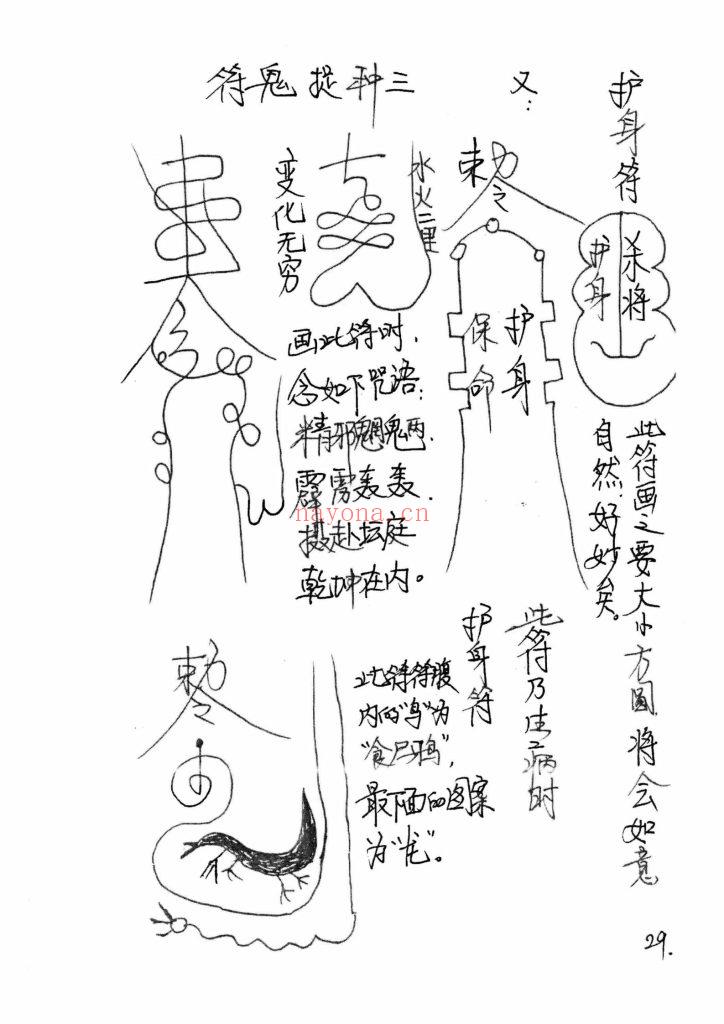 护身符
护身
杀将
此符画之要大小方圆将会如意
自然好妙矣。
又:
敕令
护身
保命
此符乃生病时
护身符
三种捉鬼符
水火二里
变化无穷
画此符时,
念如下咒语:
精邪魍魉.
霹雳轰轰.
摄赴坛庭
乾坤在内。
敕令
此符符腹
内的“鸟”为
“食尸鸦”,
最下面的图案
为“龙”。
nayona.cn
29.